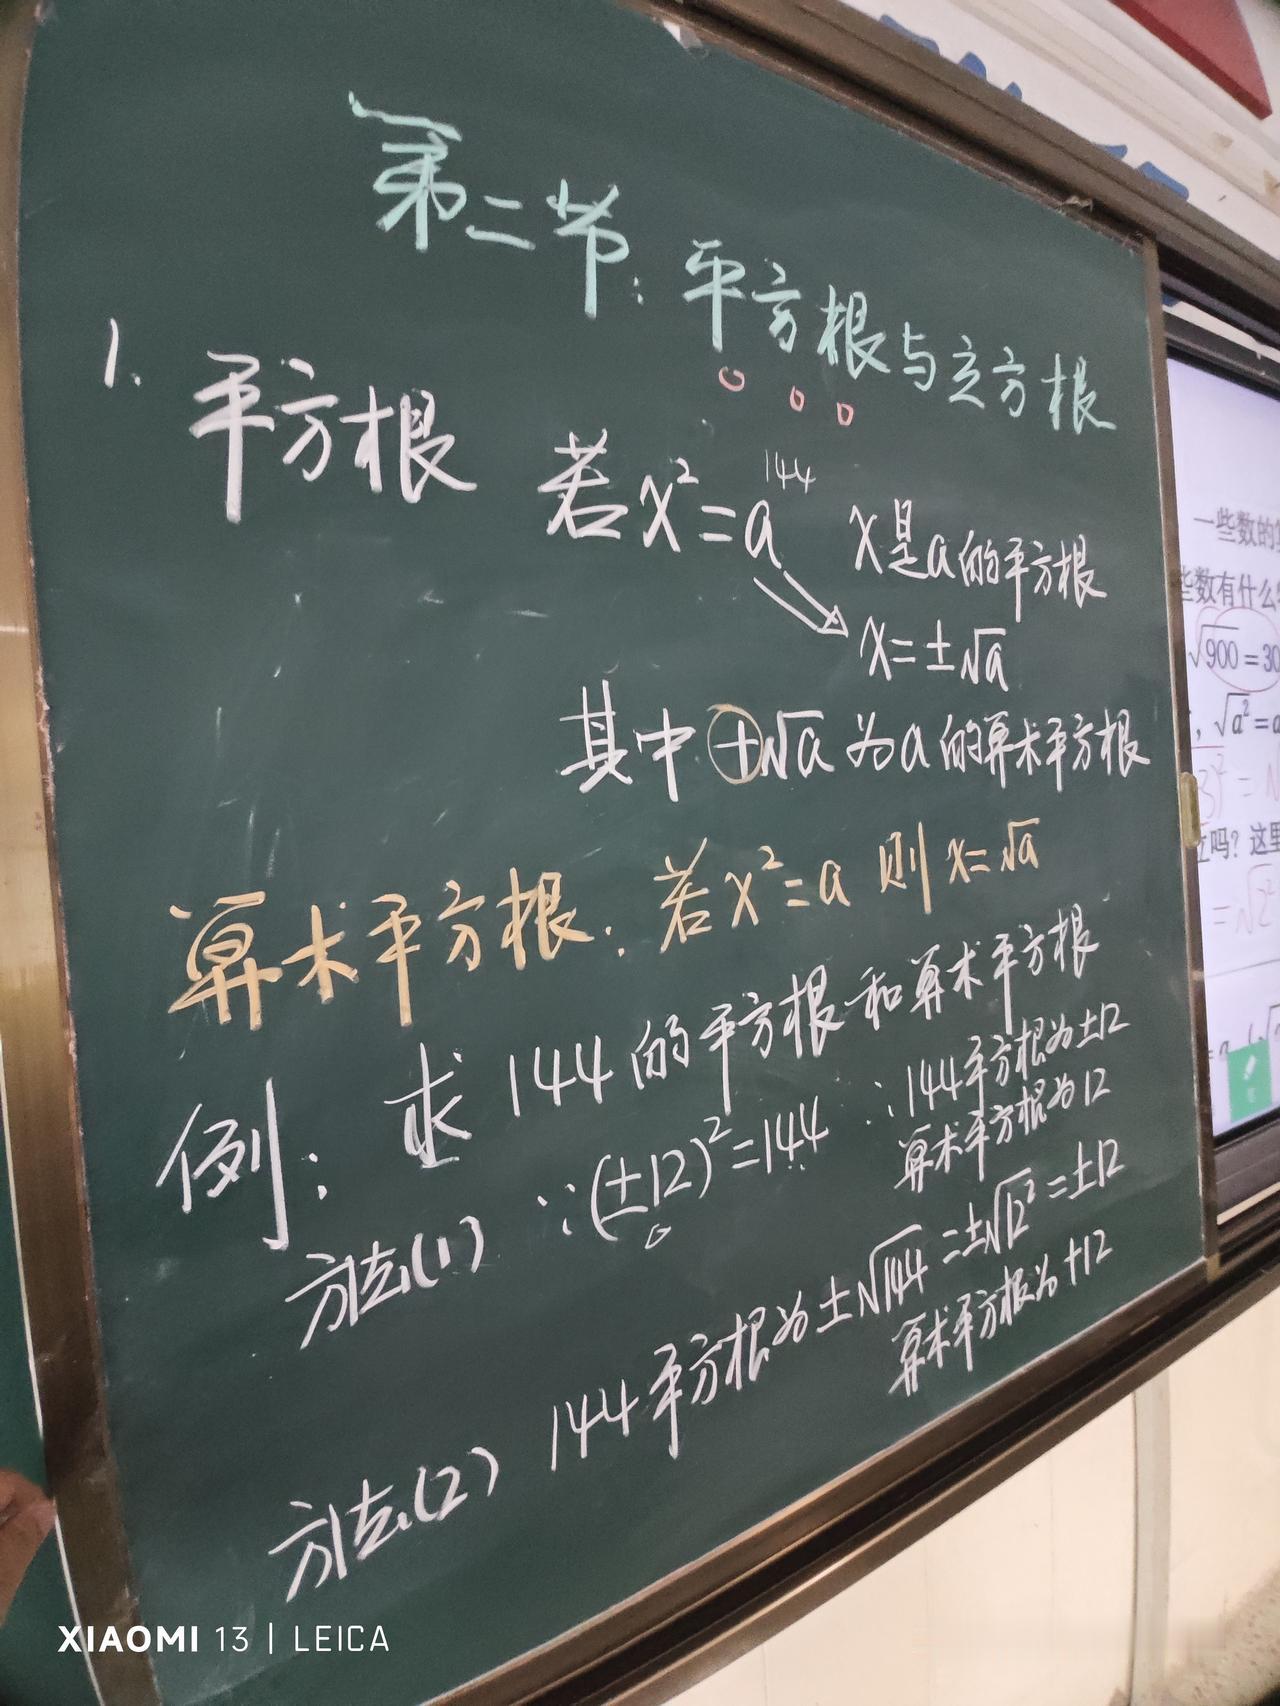 第二节：平方根与立方根
1. 平方根
144
若x²=a x是a的平方根
x=±√a
其中+√a为a的算术平方根
算术平方根：若x²=a 则x=√a
例：求144的平方根和算术平方根
方法(1) ∵(±12)²=144 ∴144平方根为±12
算术平方根为12
方法(2) 144平方根为±√144=±√12²=±12
算术平方根为+12
一些数的
些数有什么
√900=30
，√a²=a
吗？这里
XIAOMI 13 | LEICA